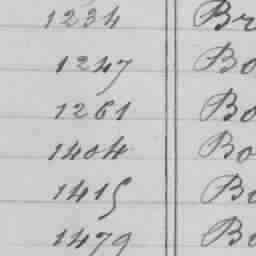 1234 Br
1247 Bo
1261 Bo
1404 Bo
1415 Bo
1479 Bo